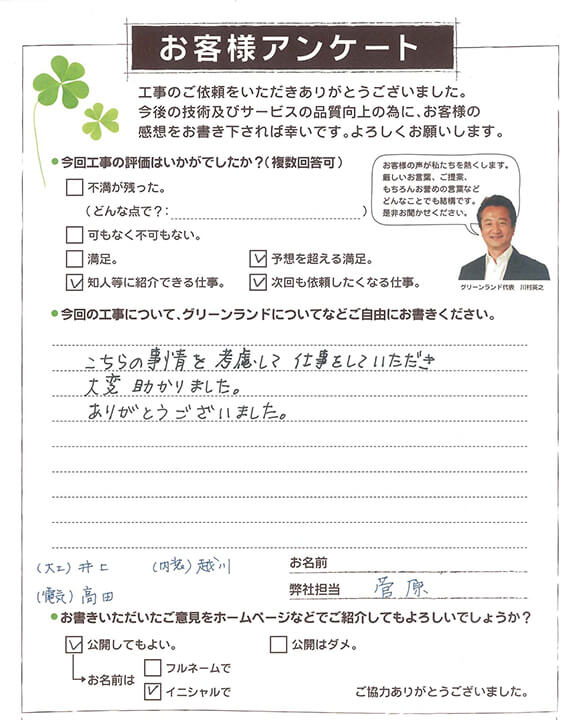 お客様アンケート
工事のご依頼をいただきありがとうございました。
今後の技術及びサービスの品質向上の為に、お客様の
感想をお書き下されば幸いです。よろしくお願いします。
●今回工事の評価はいかがでしたか?(複数回答可)
お客様の声が私たちを熱くします。
厳しいお言葉、ご提案、
もちろんお誉めの言葉など
どんなことでも結構です。
是非お聞かせください。
グリーンランド代表 川村英之
不満が残った。
(どんな点で?: )
可もなく不可もない。
満足。 ✓予想を超える満足。
✓知人等に紹介できる仕事。 ✓次回も依頼したくなる仕事。
●今回の工事について、グリーンランドについてなどご自由にお書きください。
こちらの事情を考慮して仕事をしていただき
大変助かりました。
ありがとうございました。
(大工)井上 (内装)越川
(電気)高田
お名前
弊社担当 菅原
●お書きいただいたご意見をホームページなどでご紹介してもよろしいでしょうか?
✓公開してもよい。 公開はダメ。
お名前は フルネームで
✓イニシャルで
ご協力ありがとうございました。